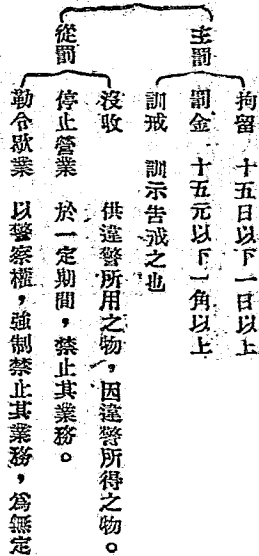 主罰
拘留　十五日以下一日以上
罰金　十五元以下一角以上
訓戒　訓示告戒之也
從罰
沒收　供違警所用之物，因違警所得之物。
停止營業　於一定期間，禁止其業務。
勒令歇業　以警察權，強制禁止其業務，爲無定